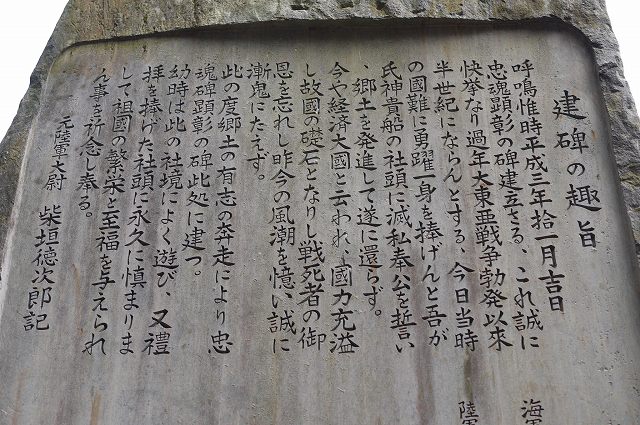 建碑の趣旨
呼鳴惟時平成三年拾一月吉日
忠魂顕彰の碑建立さる、これ誠に
快挙なり過年大東亜戦争勃発以来
半世紀にならんとする、今日当時
の國難に勇躍一身を捧げんと吾が
氏神貴船の社頭に滅私奉公を誓い
、郷土を発進して遂に還らず。
今や経済大國と云われ、國力充溢
し故國の礎石となりし戦死者の御
恩を忘れし昨今の風潮を憶い誠に
漸鬼にたえず。
此の度郷土の有志の奔走により忠
魂碑顕彰の碑此処に建つ。
幼時は此の社境によく遊び、又禮
拝を捧げた社頭に永久に慎まりま
して祖國の繁栄と至福を与えられ
ん事を祈念し奉る。
元陸軍大尉 柴垣徳次郎記
海軍
陸軍